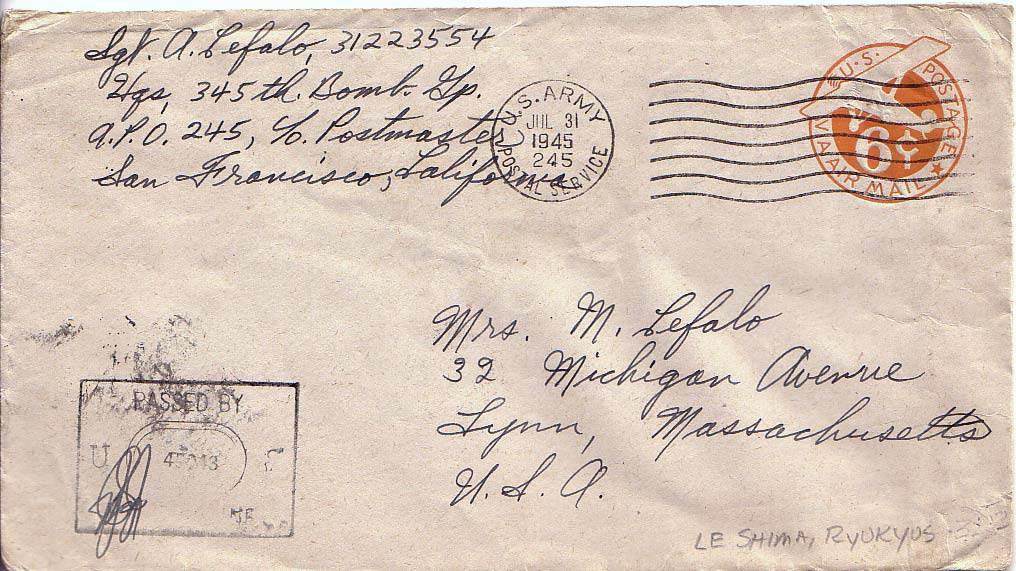 Sgt. A. Lefalo, 31223554
Hqs, 345th. Bomb. Gp.
A.P.O. 245, c/o Postmaster
San Francisco, California
U.S. ARMY
JUL 31
1945
245
POSTAL SERVICE
U.S. POSTAGE
6¢
VIA AIR MAIL
Mrs. M. Lefalo
32 Michigan Avenue
Lynn, Massachusetts
U.S.A.
PASSED BY
U
LE SHIMA, RYUKYUS